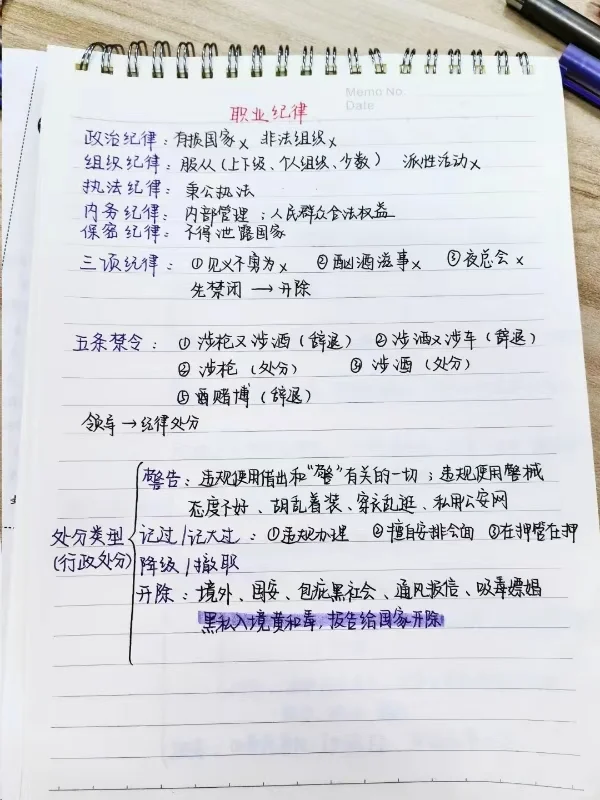 Memo No
Date
职业纪律
政治纪律：有损国家x 非法组织x
组织纪律：服从（上下级、个人组织、少数） 派性活动x
执法纪律：秉公执法
内务纪律：内部管理；人民群众合法权益
保密纪律：不得泄露国家
三项纪律：①见义不勇为x ②酗酒滋事x ③夜总会x
先禁闭→开除
五条禁令：①涉枪又涉酒（辞退） ②涉酒又涉车（辞退）
②涉枪（处分） ③涉酒（处分）
⑤ 赌博（辞退）
领导→纪律处分
警告：违规使用借出和"警"有关的一切；违规使用警械
态度不好、胡乱着装、穿衣乱逛、私用公安网
处分类型 记过/记大过：①违规办理 ②擅自安排会面 ③在押管在押
(行政处分) 降级/撤职
开除：境外、国安、包庇黑社会、通风报信、吸毒嫖娼
黑私入境黄和毒，报告给国家开除